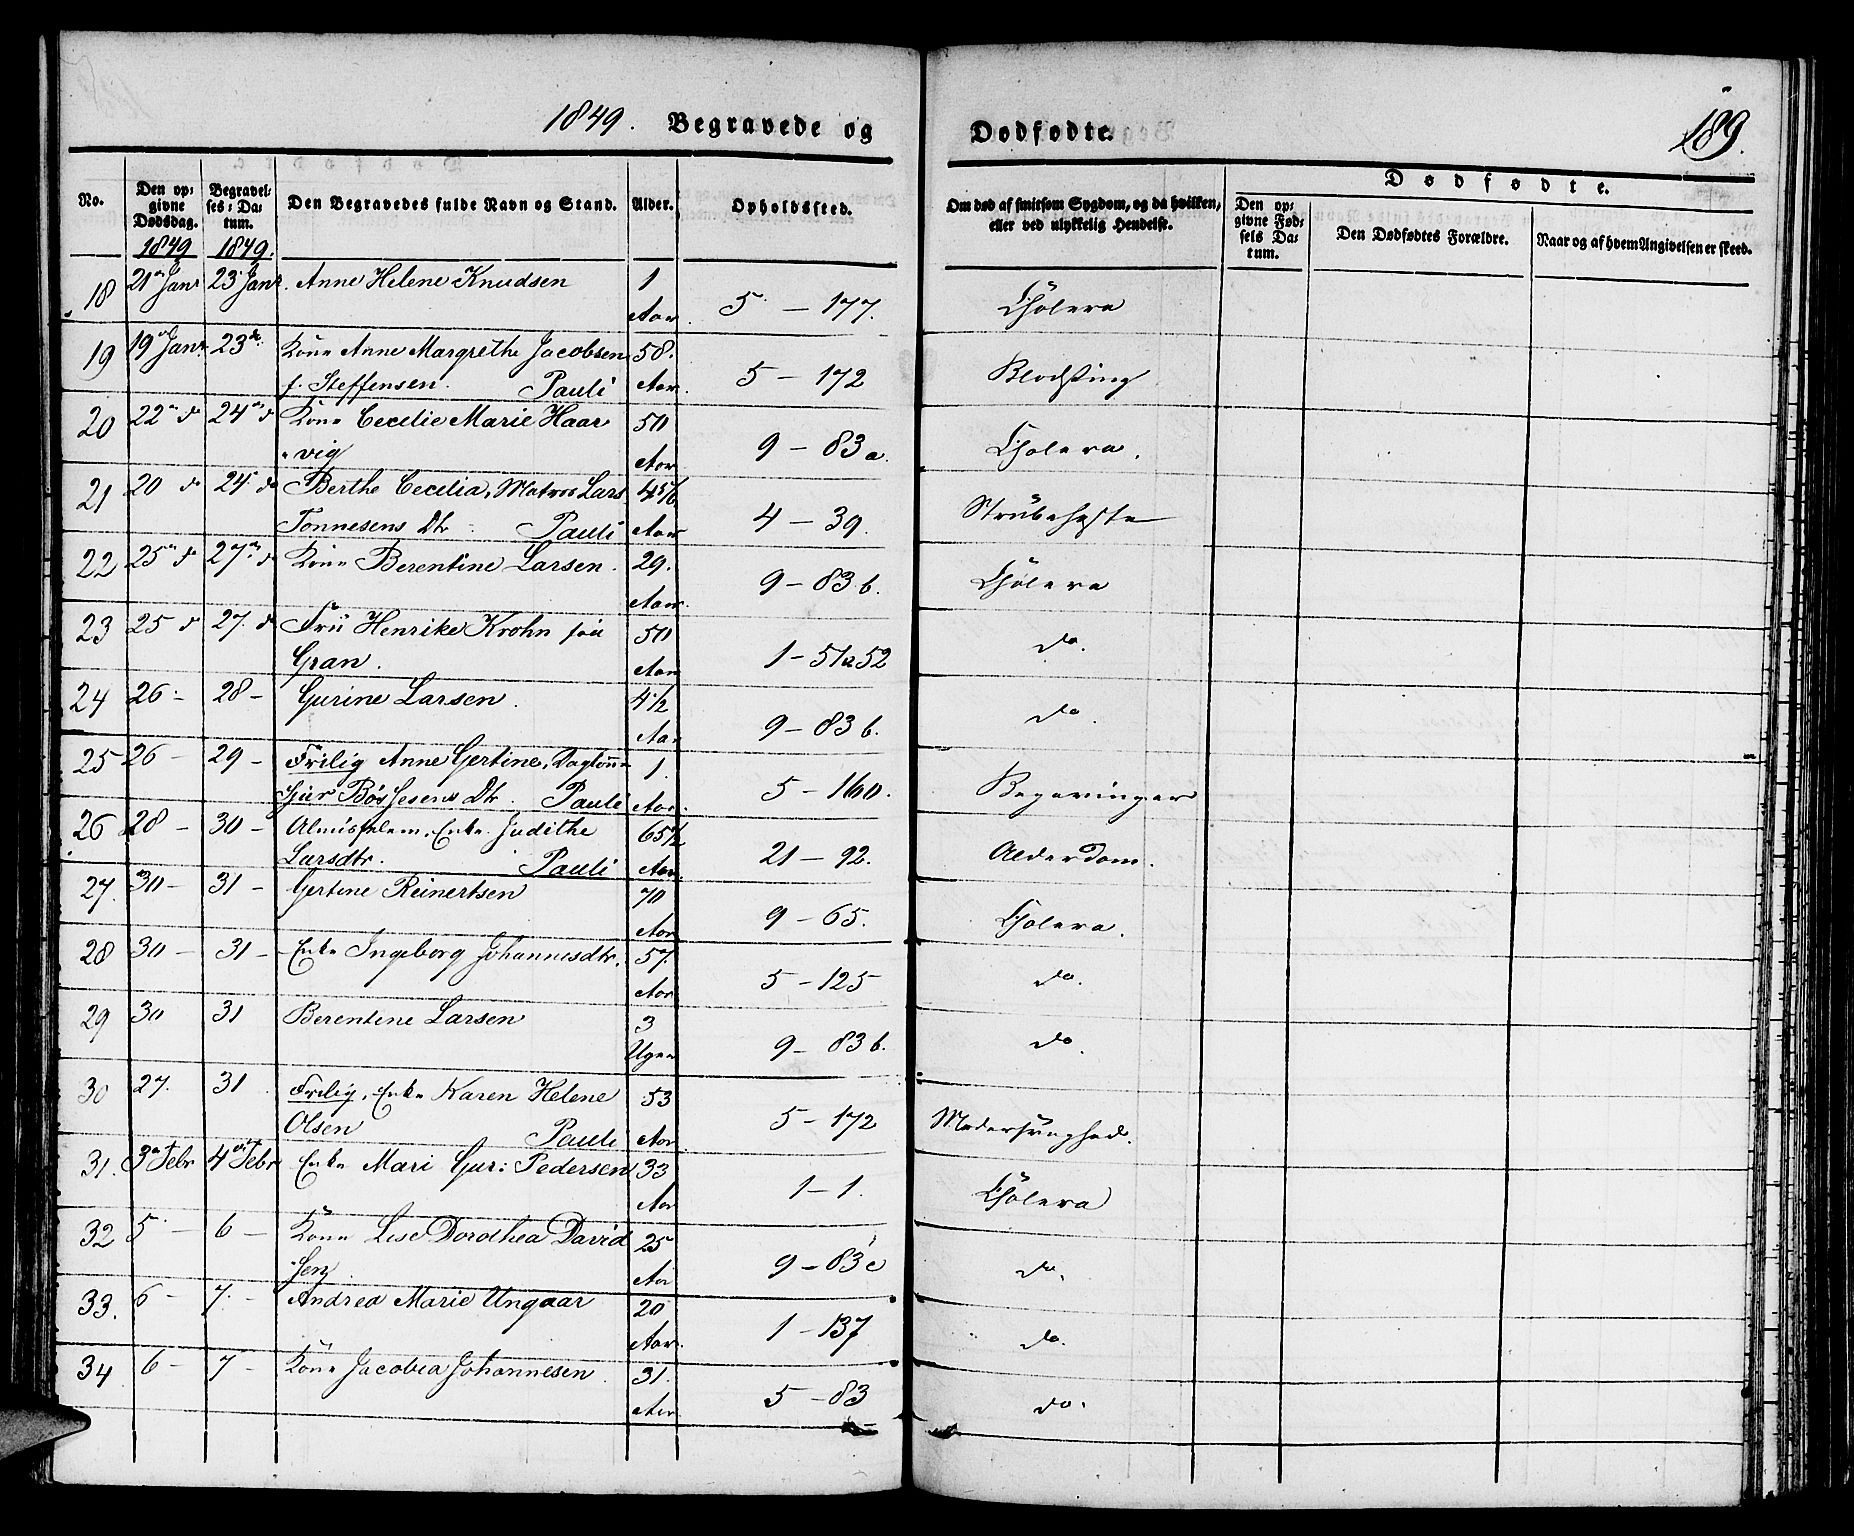 1849. Begravede og Dødfødte. 189.
No. | Den opgivne Dødsdag. 1849 | Begravelses-Datum. 1849. | Den Begravedes fulde Navn og Stand. | Alder. | Opholdssted. | Om død af smitsom Sygdom, og da hvilken, eller ved ulykkelig Hendelse. | Dødfødte. | Den opgivne Fødsels Datum. | Den Dødfødtes Forældre. | Naar og af hvem Angivelsen er skeed.
18 21 Janr 23 Janr. Anne Helene Knudsen 1 Aar 5 – 177. Cholera
19 19 Janr 23 do. Kone Anne Margrethe Jacobsen 58.
f. Steffensen. Pauli Aar 5 – 172 Blodsting
20 22 d 24 d Kone Cecilie Marie Haar 50
vig Aar 9 – 83 a. Cholera.
21 20 do 24 do Berthe Cecilia, Matros Lars 4 5/6
Tonnesens Dtr Pauli Aar 4 – 39. Strubehoste
22 25 d 27 d Kone Berentine Larsen. 29. Aar. 9 – 83 b. Cholera
23 25 d 27. d Frü Henrike Krohn 50
Gran. Aar 1 – 51 a 52 do.
24 26 – 28 – Gurine Larsen. 4 1/2 Aar 9 – 83 b. do.
25 26 – 29 – Frilig Anne Gertine, Dagløn 1.
Pauli Aar. 5 – 160.
26 28 – 30 – Almisselem, Enke Judithe 65 1/2
Larsdtr. Pauli Aar. 21 – 92. Alderdom.
27. 30 – 31 – Gertine Reinertsen 70 Aar 9 – 65. Cholera.
28 30 – 31 – Enke Ingeborg Johannesdtr. 57. Aar 5 – 125 do.
29 30 31 Berentine Larsen 3 Uger 9 – 83 b. do.
30 27. 31 Frilig, Enke Karen Helene 53
Olsen Pauli Aar 5 – 172
31. 3 Febr 4 Febr Enke Mari Gur: Pedersen 33 Aar 1 – 1. Cholera
32 5 – 6 – Kone Lise Dorothea David 25
sen Aar 9 – 83 c do.
33. 6 – 7. – Andrea Marie Ungaar 20 Aar. 1 – 137 do.
34 6 – 7 – Kone Jacobea Johannesen. 31. Aar 5 – 83 do.